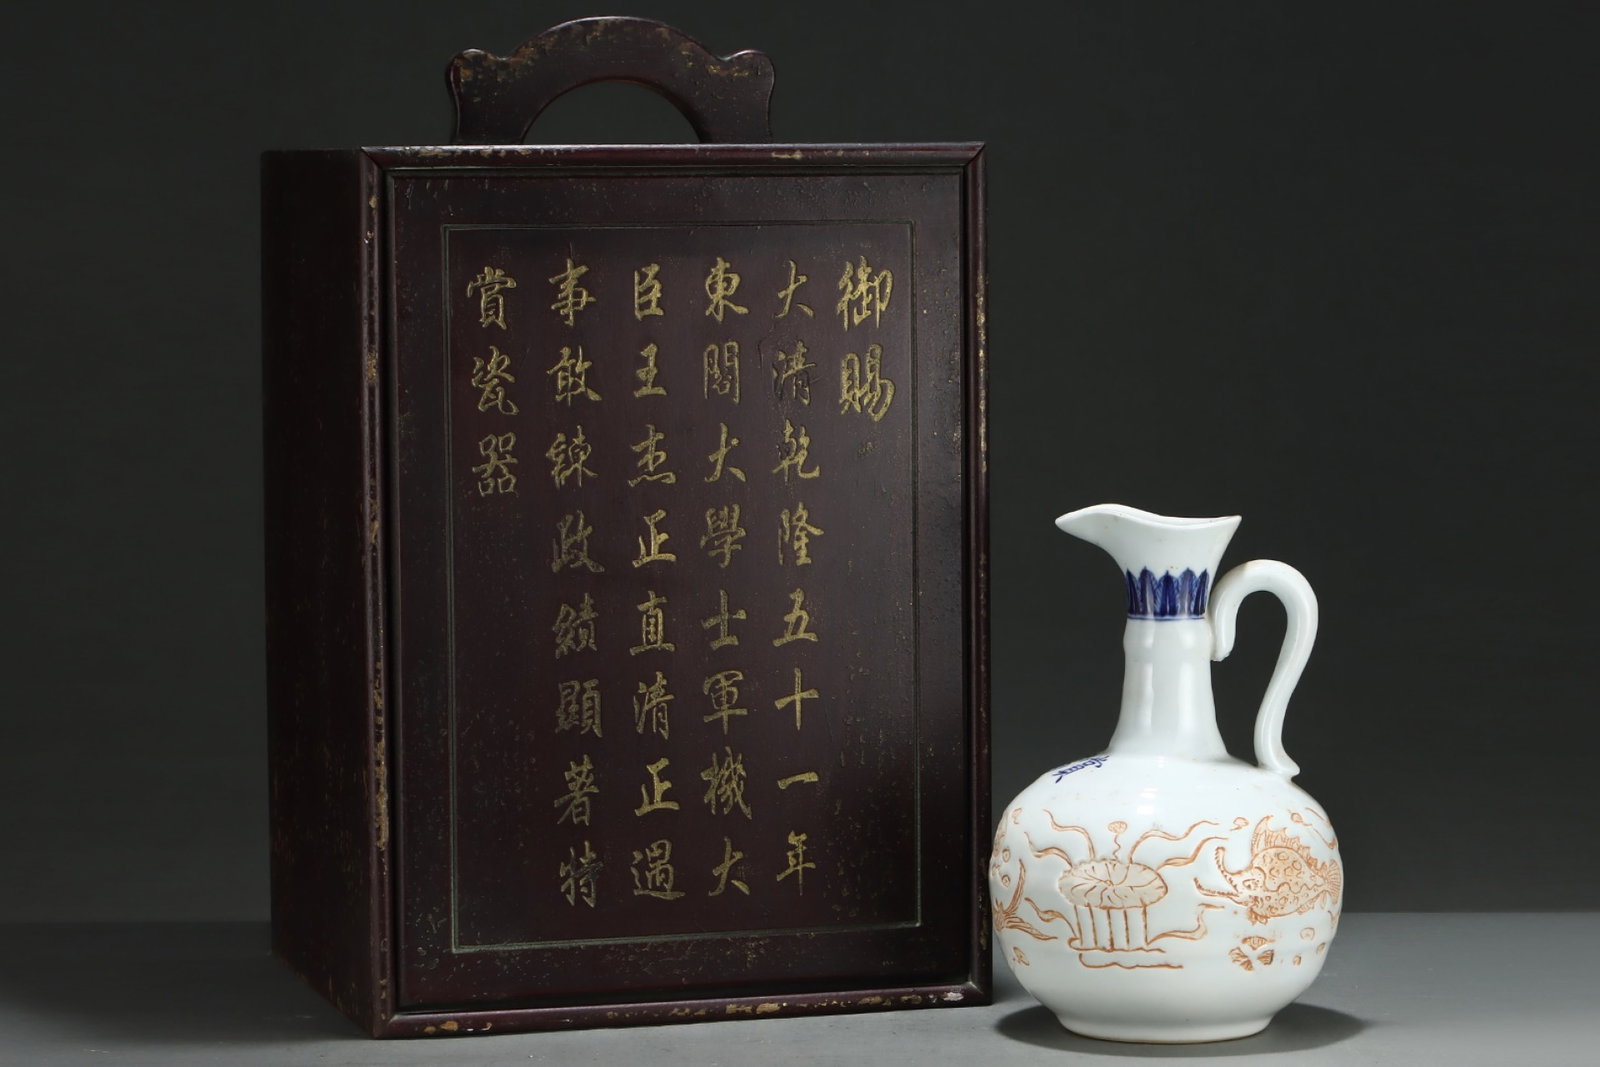 御賜
大清乾隆五十一年
東閣大學士軍機大
臣王杰正直清正遇
事敢諫政績顯著特
賞瓷器